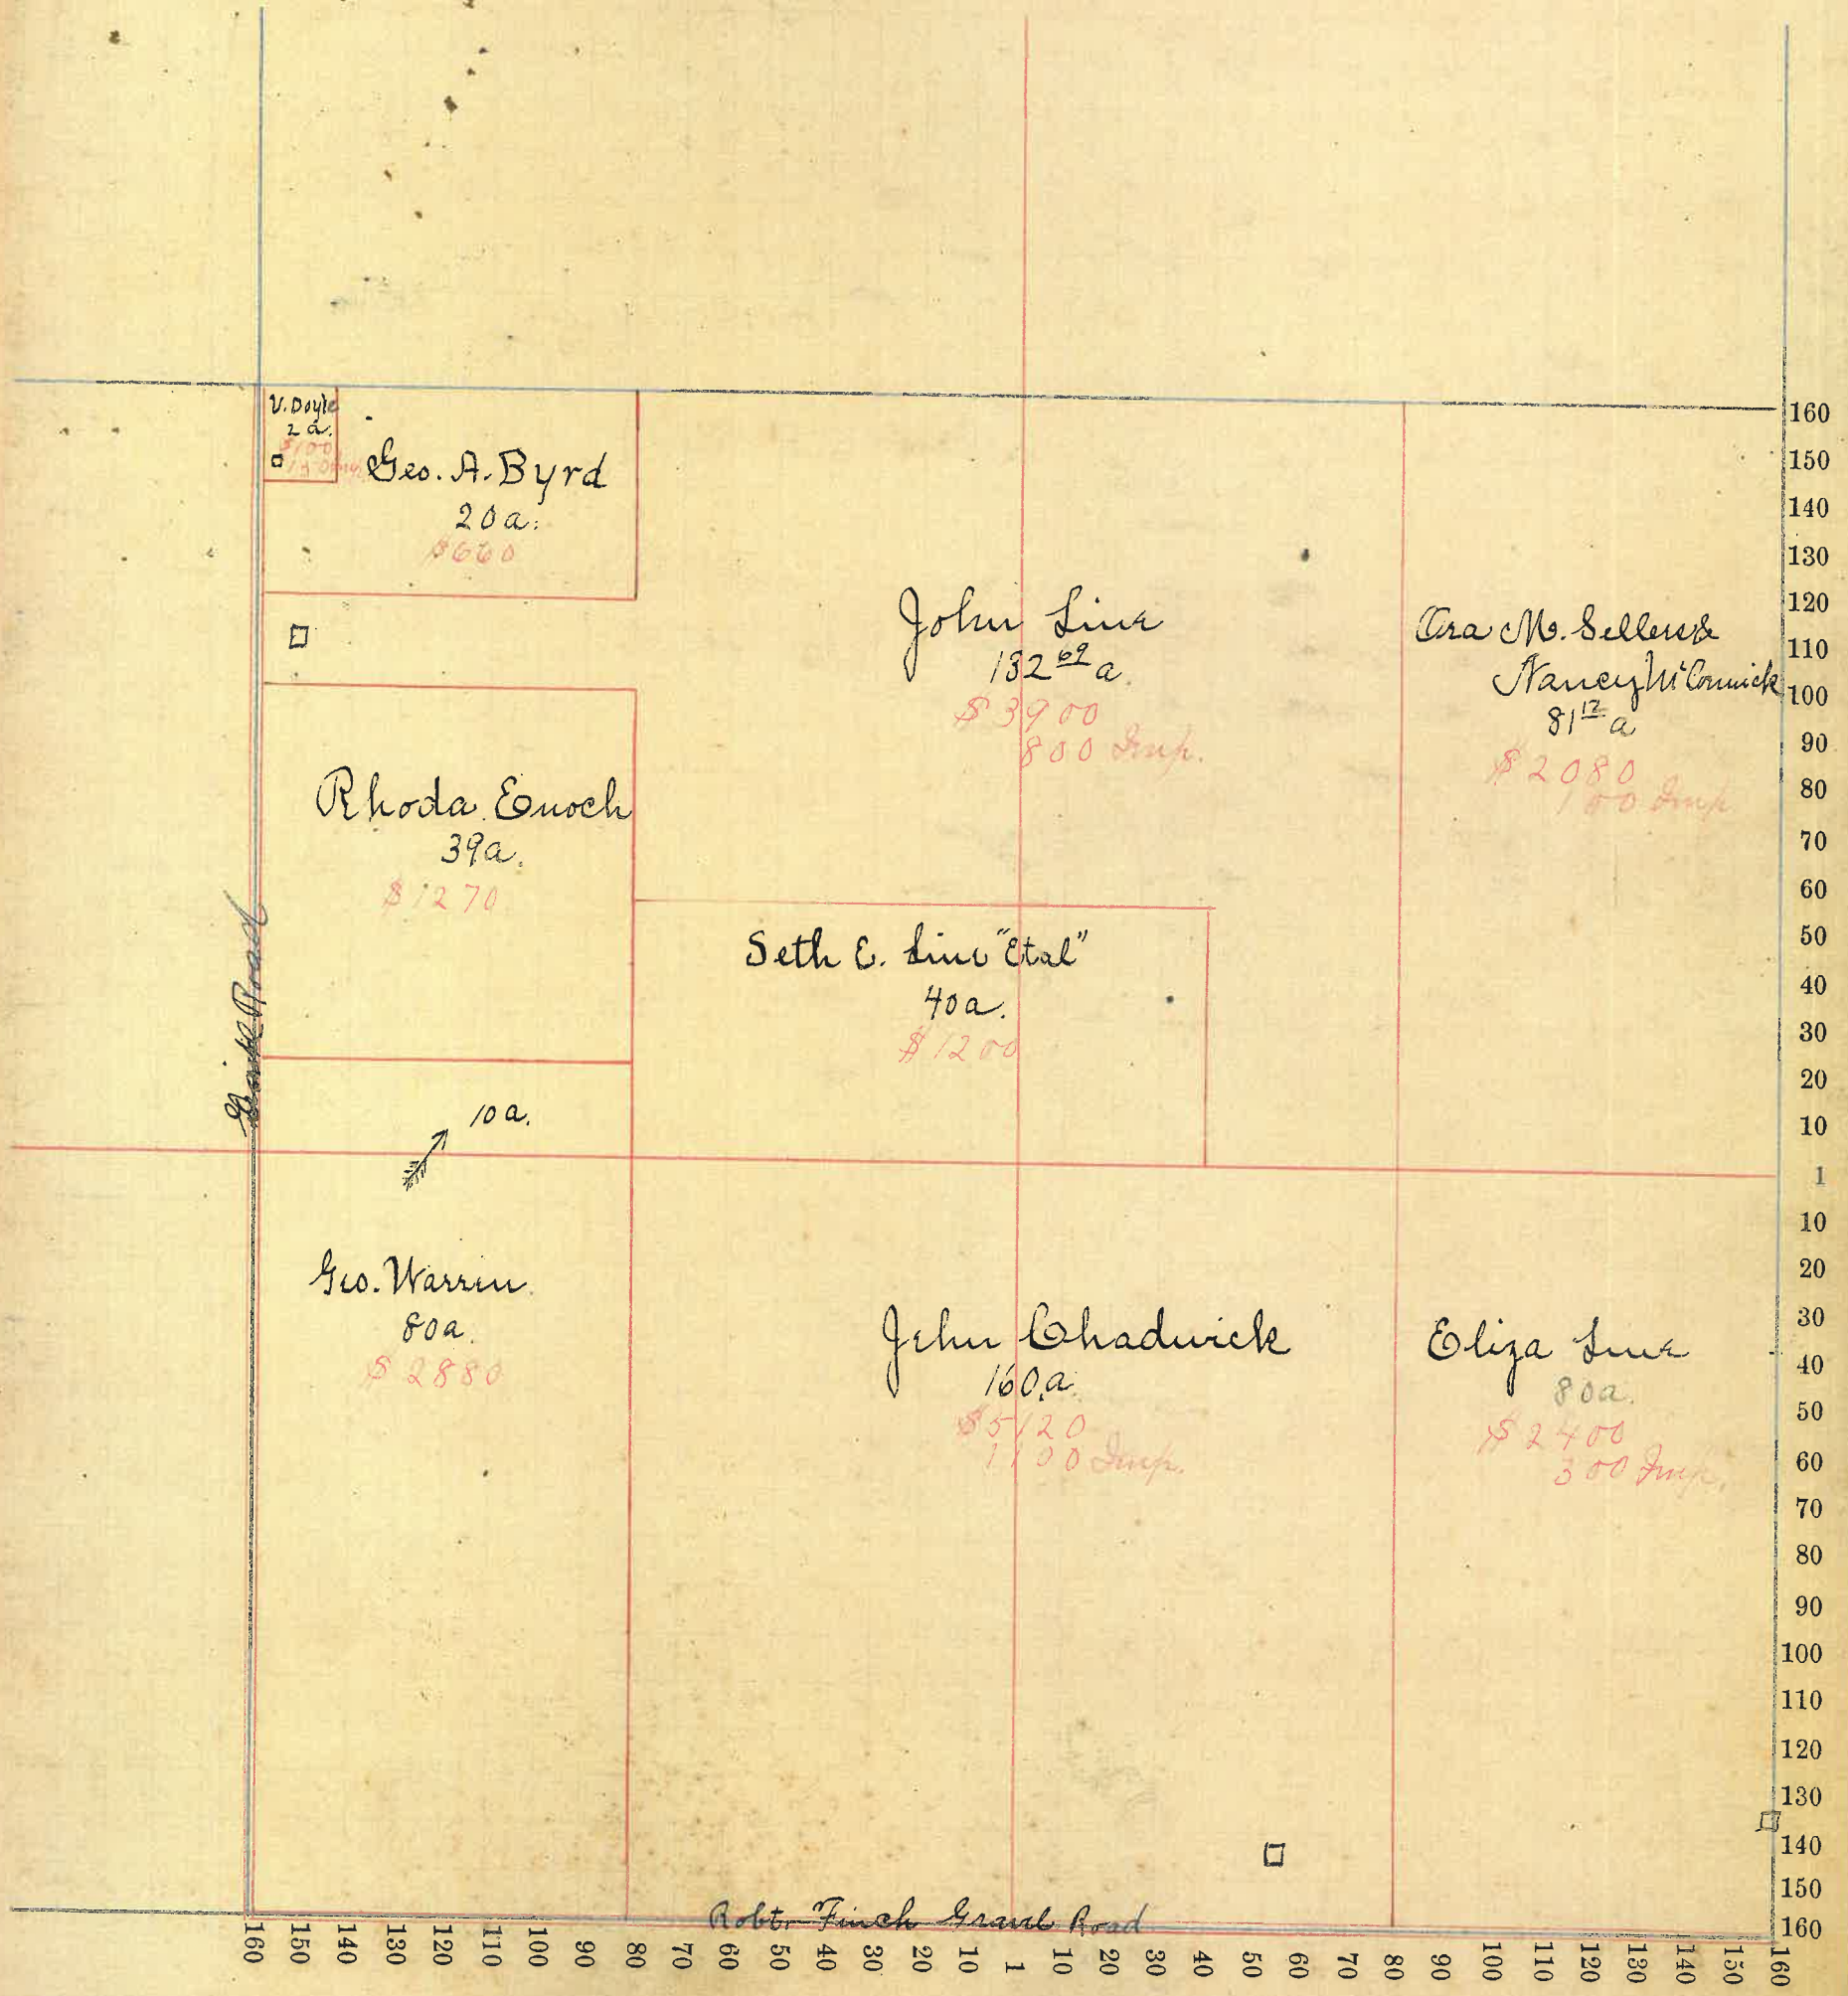 V. Doyle
2 a.
$100
Geo. A. Byrd
20 a.
$660
John Line
132 69 a.
$3900
800 Imp.
Ora M. Sellers &
Nancy McCormick
81 12 a
$2080
100 Imp
Rhoda Enoch
39 a.
$1270
Seth E. Line "Etal"
40 a.
$1200
10 a.
Road
Geo. Warren
80 a.
$2880
John Chadwick
160 a.
$5120
1100 Imp.
Eliza Line
80 a.
$2400
300 Imp.
Robt. Finch Gravel Road
160
150
140
130
120
110
100
90
80
70
60
50
40
30
20
10
1
10
20
30
40
50
60
70
80
90
100
110
120
130
140
150
160
160 150 140 130 120 110 100 90 80 70 60 50 40 30 20 10 1 10 20 30 40 50 60 70 80 90 100 110 120 130 140 150 160